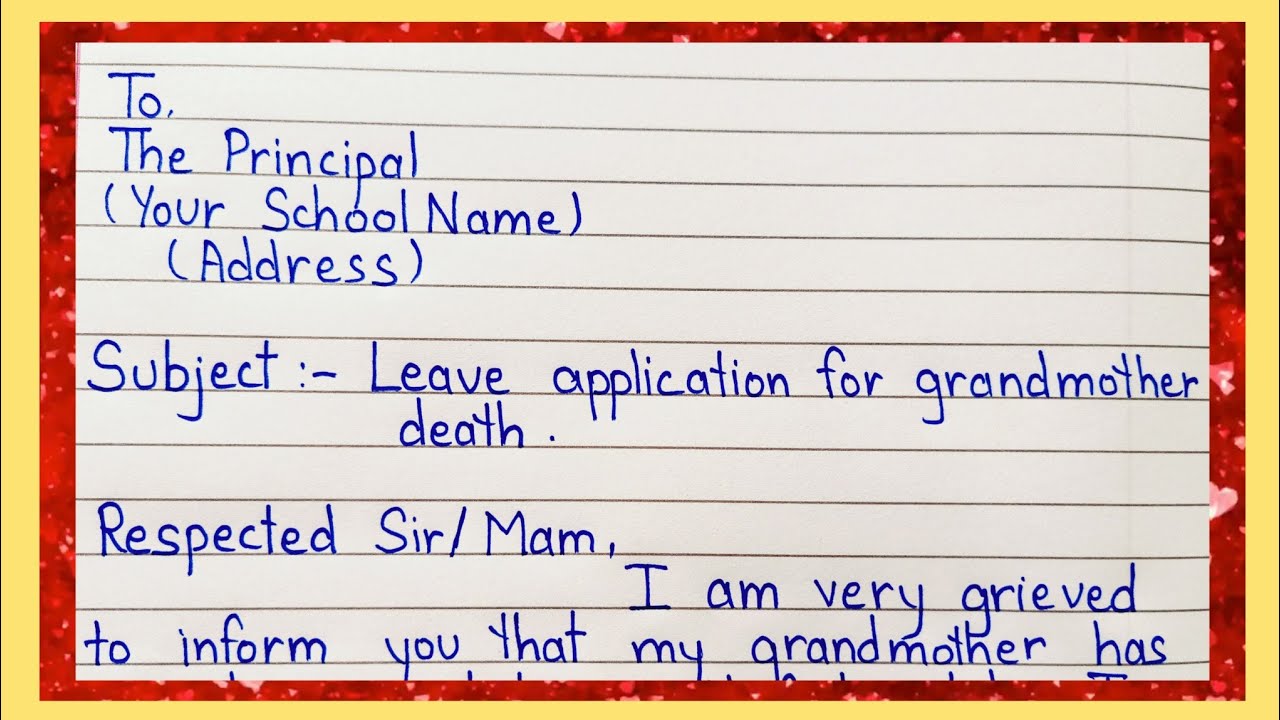 To,
The Principal
(Your School Name)
(Address)
Subject :- Leave application for grandmother
death.
Respected Sir/Mam,
I am very grieved
to inform you that my grandmother has